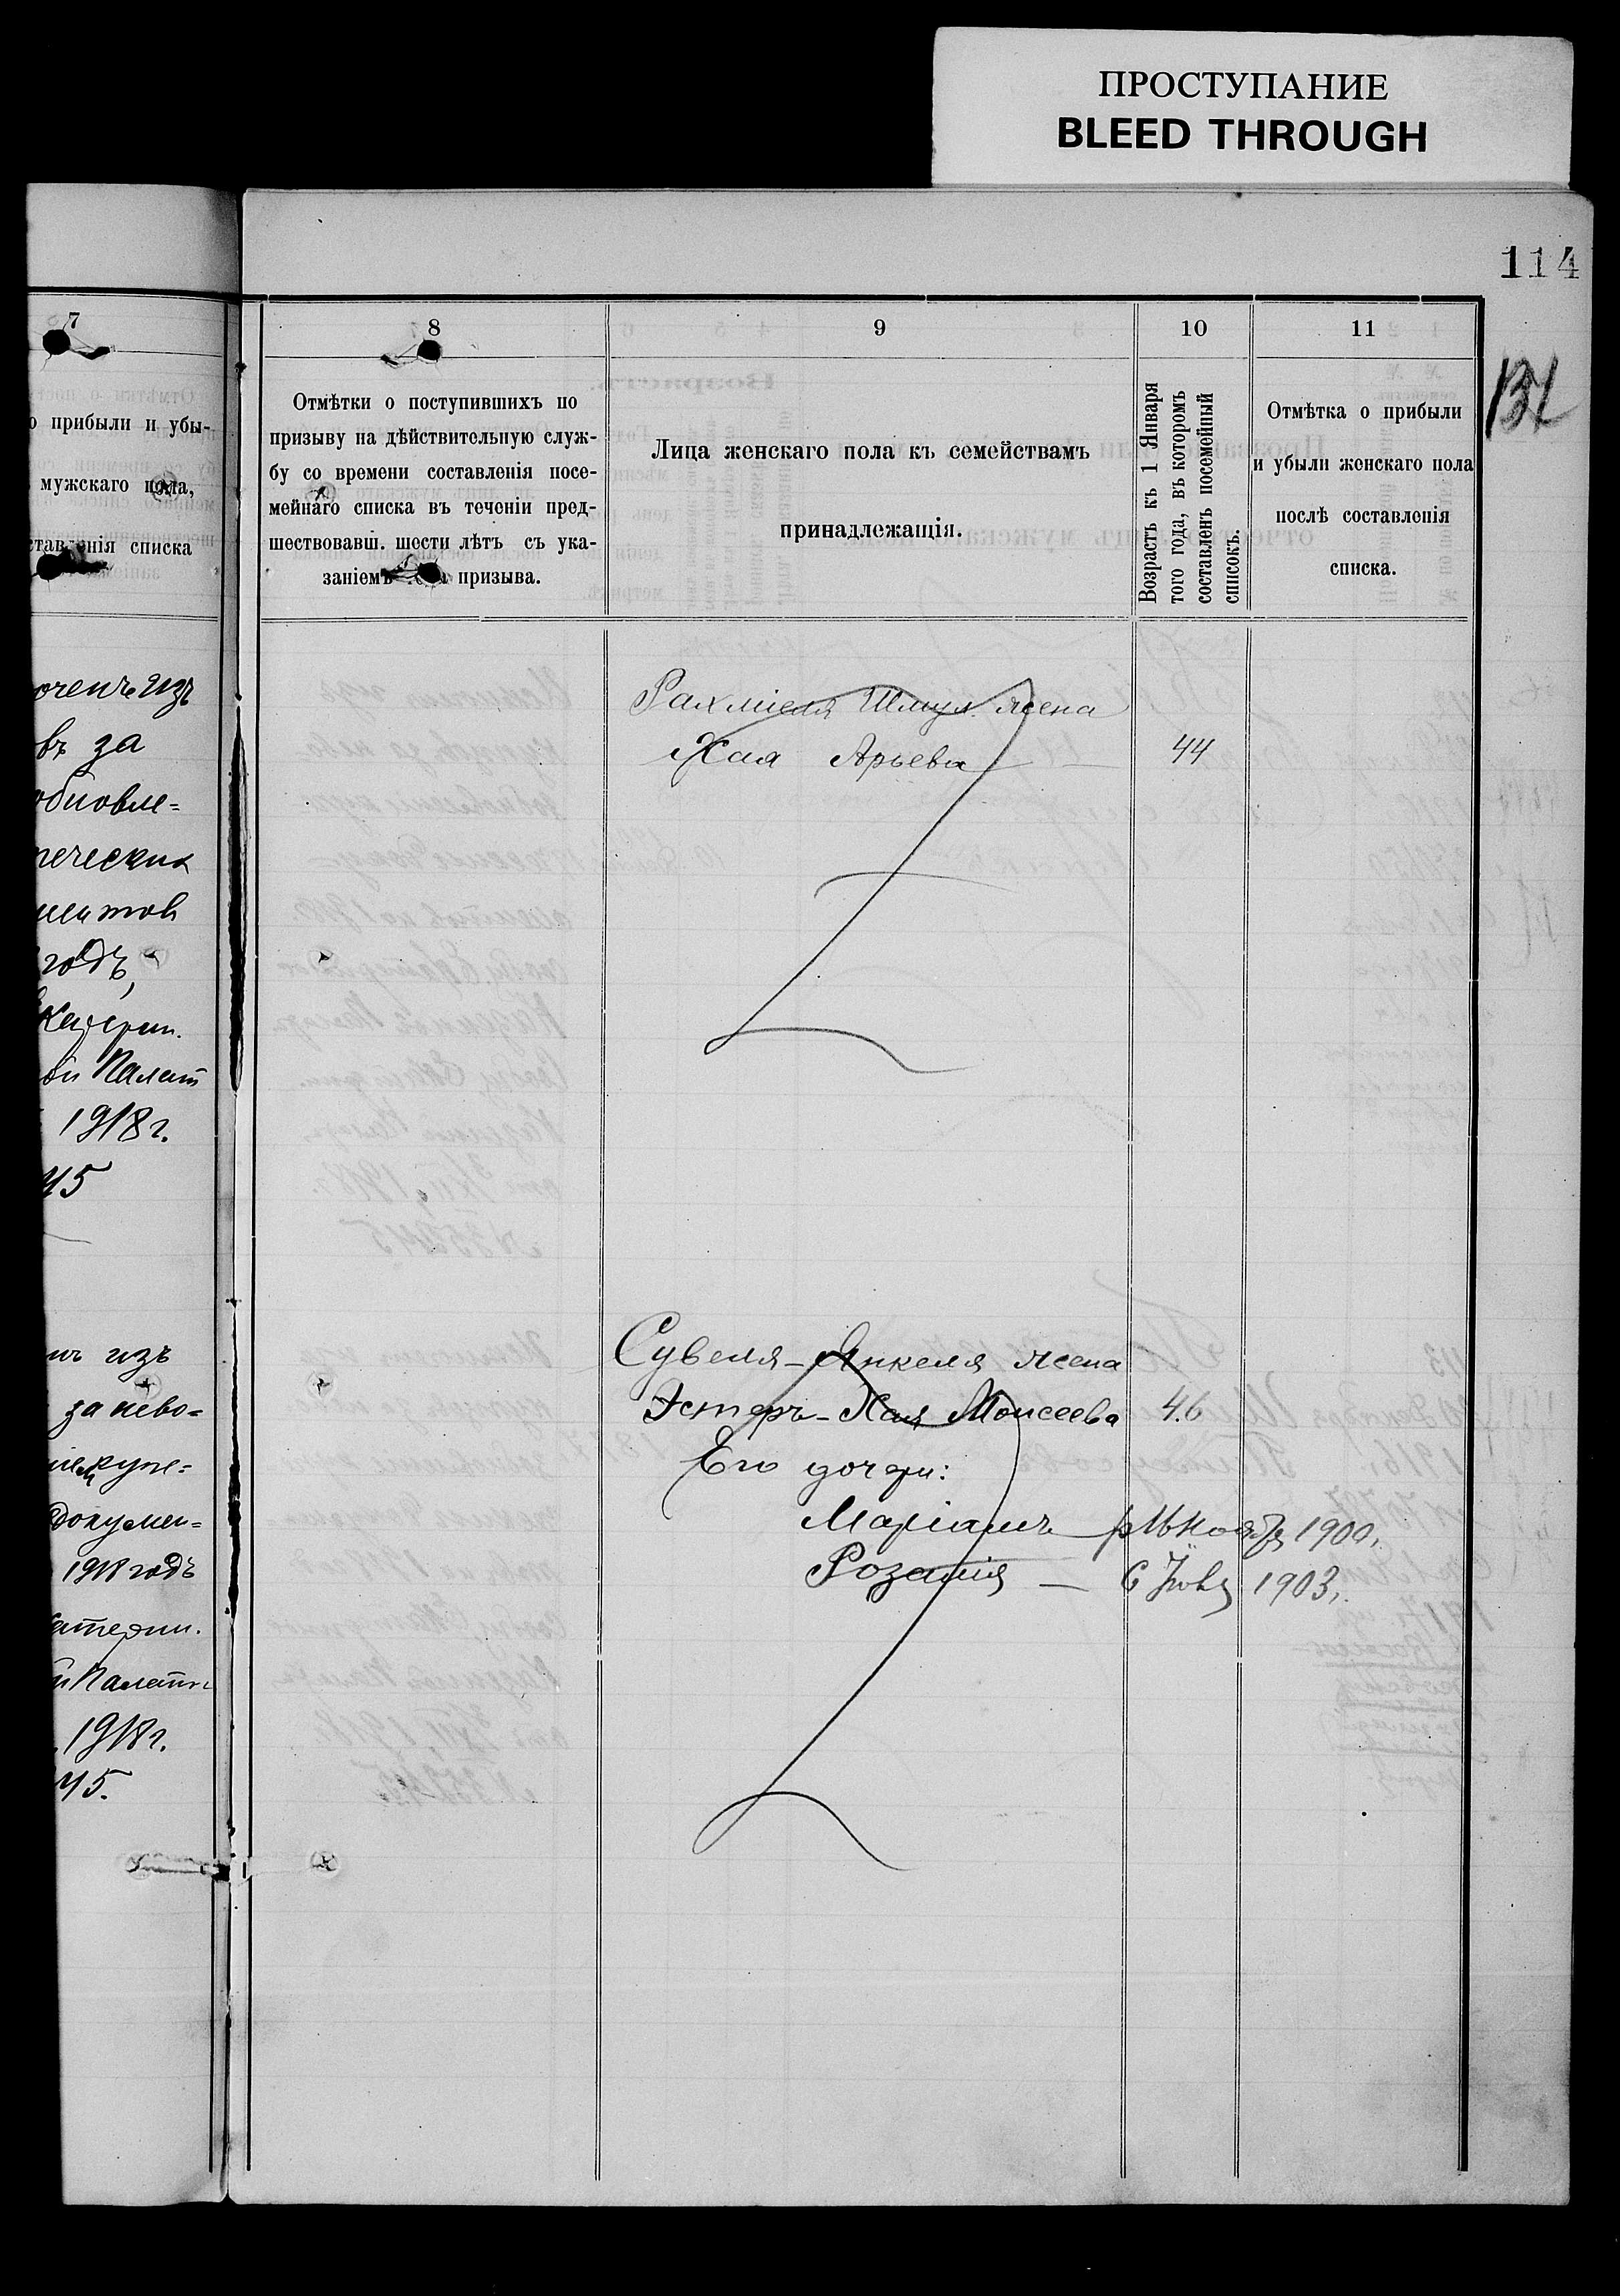 ПРОСТУПАНИЕ
BLEED THROUGH
114
7
прибыли и убы-
мужскаго пола,
списка
изъ
въ за
обновле=
ческих
годъ,
Катерин.
Палат
1918 г.
45
изъ
за нево=
купе=
докумен=
1918 годъ
атерин.
Палаты
1918 г.
45.
8
Отмѣтки о поступившихъ по
призыву на дѣйствительную служ-
бу со времени составленія посе-
мейнаго списка въ теченіи пред-
шествовавш. шести лѣтъ съ ука-
заніемъ призыва.
9
Лица женскаго пола къ семействамъ
принадлежащія.
10
Возрастъ къ 1 Января
того года, въ которомъ
составленъ посемейный
списокъ.
11
Отмѣтка о прибыли
и убыли женскаго пола
послѣ составленія
списка.
Рахміеля Шмул. жена
Хая Арьева — 44
Сувеля-Янкеля жена
Эстеръ-Хая Моисеева 46
Его дочери:
Маріамъ 1900.
Розалія — 6 1903.